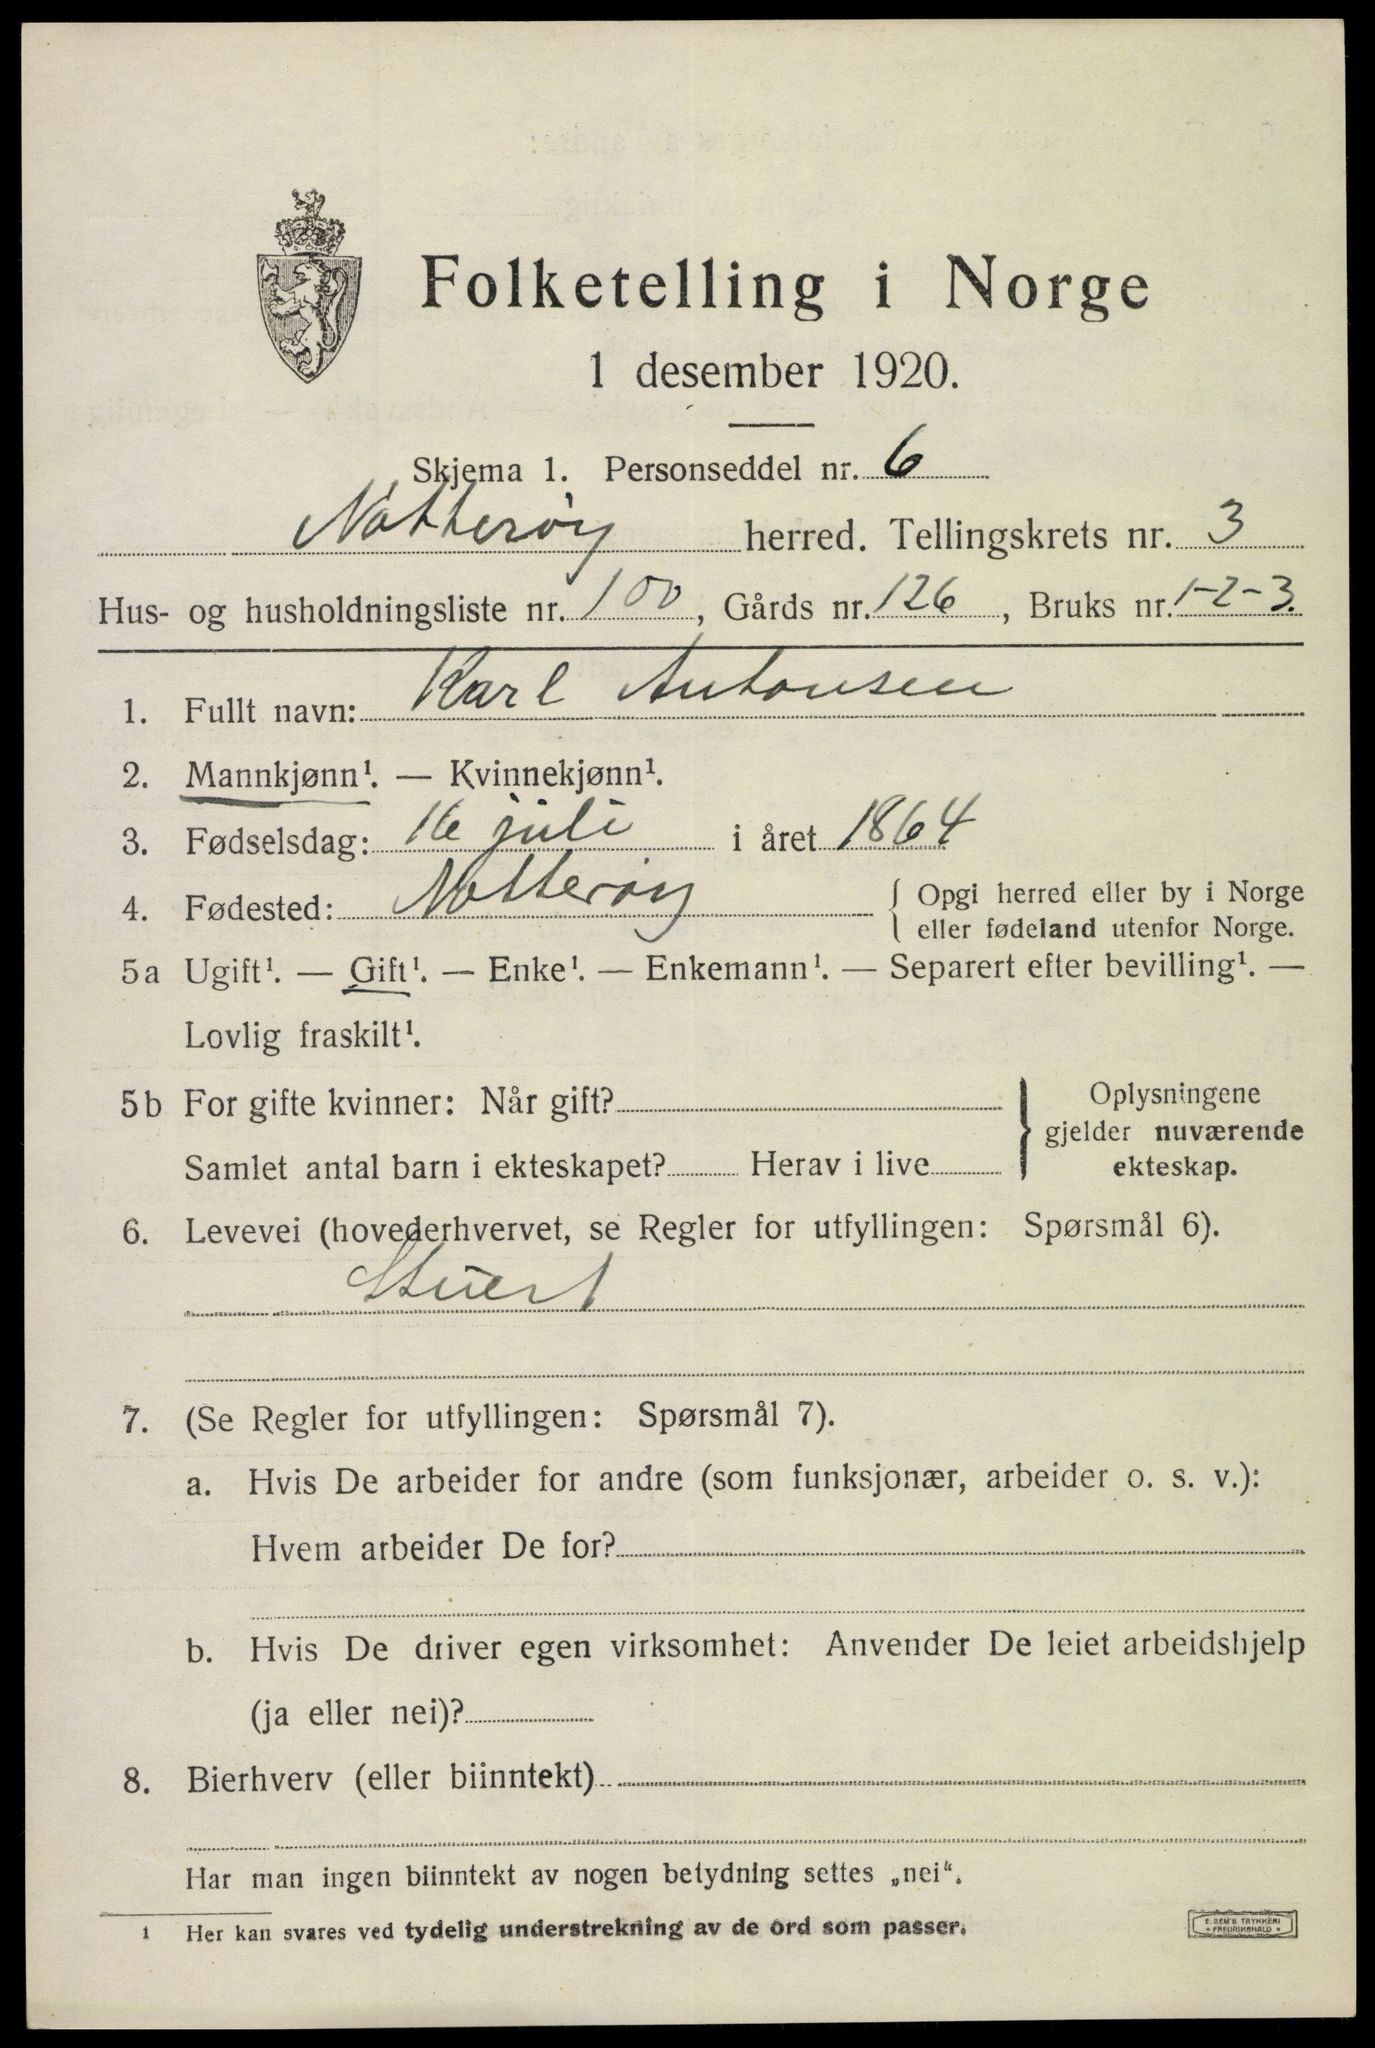 Folketelling i Norge
1 desember 1920.
Skjema 1. Personseddel nr. 6
Nøtterøy herred. Tellingskrets nr. 3
Hus- og husholdningsliste nr. 100, Gårds nr. 126, Bruks nr. 1-2-3.
1. Fullt navn: Karl Antonsen
2. Mannkjønn¹. — Kvinnekjønn¹.
3. Fødselsdag: 16 juli i året 1864
4. Fødested: Nøtterøy { Opgi herred eller by i Norge
eller fødeland utenfor Norge.
5a Ugift¹. — Gift¹. — Enke¹. — Enkemann¹. — Separert efter bevilling¹. —
Lovlig fraskilt¹.
5b For gifte kvinner: Når gift? } Oplysningene
gjelder nuværende
Samlet antal barn i ekteskapet? Herav i live ekteskap.
6. Levevei (hovederhvervet, se Regler for utfyllingen: Spørsmål 6).
Stuert
7. (Se Regler for utfyllingen: Spørsmål 7).
a. Hvis De arbeider for andre (som funksjonær, arbeider o. s. v.):
Hvem arbeider De for?
b. Hvis De driver egen virksomhet: Anvender De leiet arbeidshjelp
(ja eller nei)?
8. Bierhverv (eller biinntekt)
Har man ingen biinntekt av nogen betydning settes „nei“.
1 Her kan svares ved tydelig understrekning av de ord som passer.
E. SEM'S TRYKKERI
• FREDRIKSHALD •